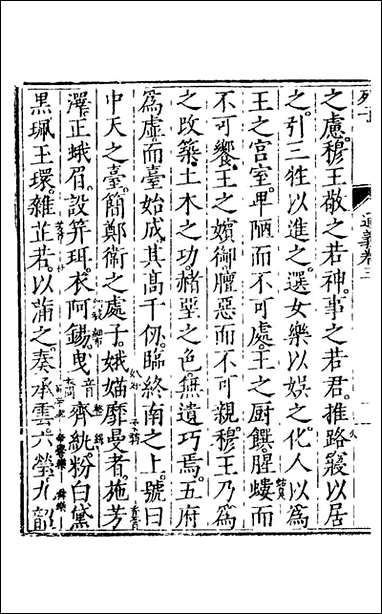 通義卷三
之慮。穆王敬之若神。事之若君。推路寢以居
之。引三牲以進之。選女樂以娛之。化人以為
王之宮室。卑陋而不可處。王之厨饌。腥螻而
不可饗。王之嬪御。膻惡而不可親。穆王乃為
之改築。土木之功。赭堊之色。無遺巧焉。五府
為虛而臺始成。其高千仞。臨終南之上。號曰
中天之臺。簡鄭衛之處子。娥媌靡曼者。施芳
澤。正蛾眉。設笄珥。衣阿錫。曳齊紈。粉白黛
黒珮玉環。雜芷若。以滿之。奏承雲六瑩九韶